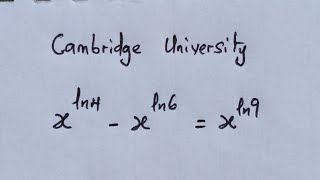 Cambridge University
x^ln4 - x^ln6 = x^ln9